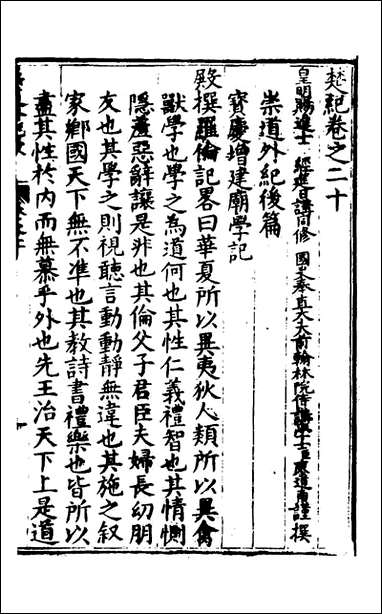 楚紀卷之二十
皇明賜進士 經筵日講同修 國史奉直大夫前翰林院侍講學士臣廖道南謹 撰
崇道外紀後篇
寶慶增建廟學記
殿撰羅倫記畧曰華夏所以異夷狄人類所以異禽
獸學也學之為道何也其性仁義禮智也其情惻
隱羞惡辭讓是非也其倫父子君臣夫婦長幼朋
友也其學之則視聽言動動靜無違也其施之叙
家鄉國天下無不準也其教詩書禮樂也皆所以
盡其性於內而無慕乎外也先王治天下上是道